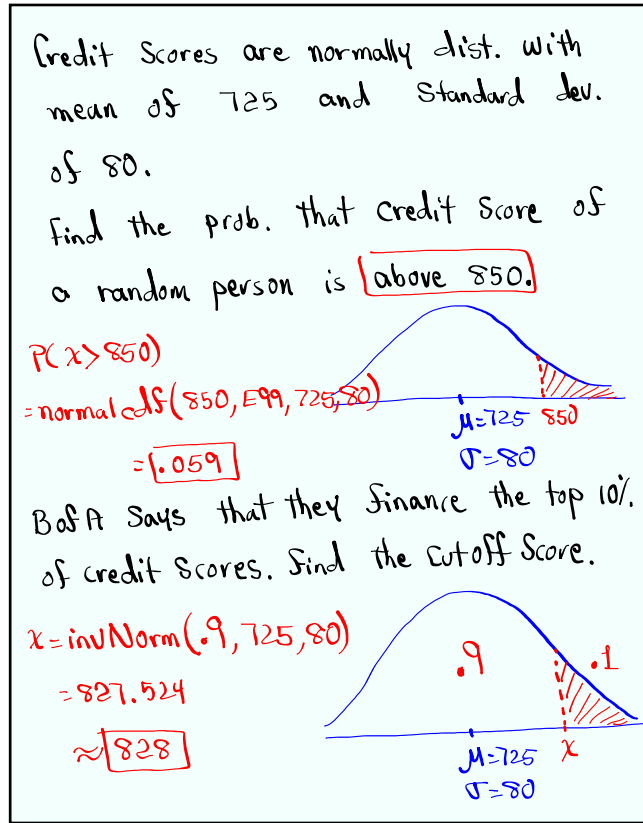 Credit Scores are normally dist. with
mean of 725 and Standard dev.
of 80.
Find the prob. that Credit Score of
a random person is above 850.
P(x>850)
=normalcdf(850,E99,725,80)
=.059
μ=725 850
σ=80
BofA Says that they finance the top 10%
of credit Scores. Find the Cutoff Score.
x=invNorm(.9,725,80)
=827.524
≈828
.9 .1
μ=725 x
σ=80